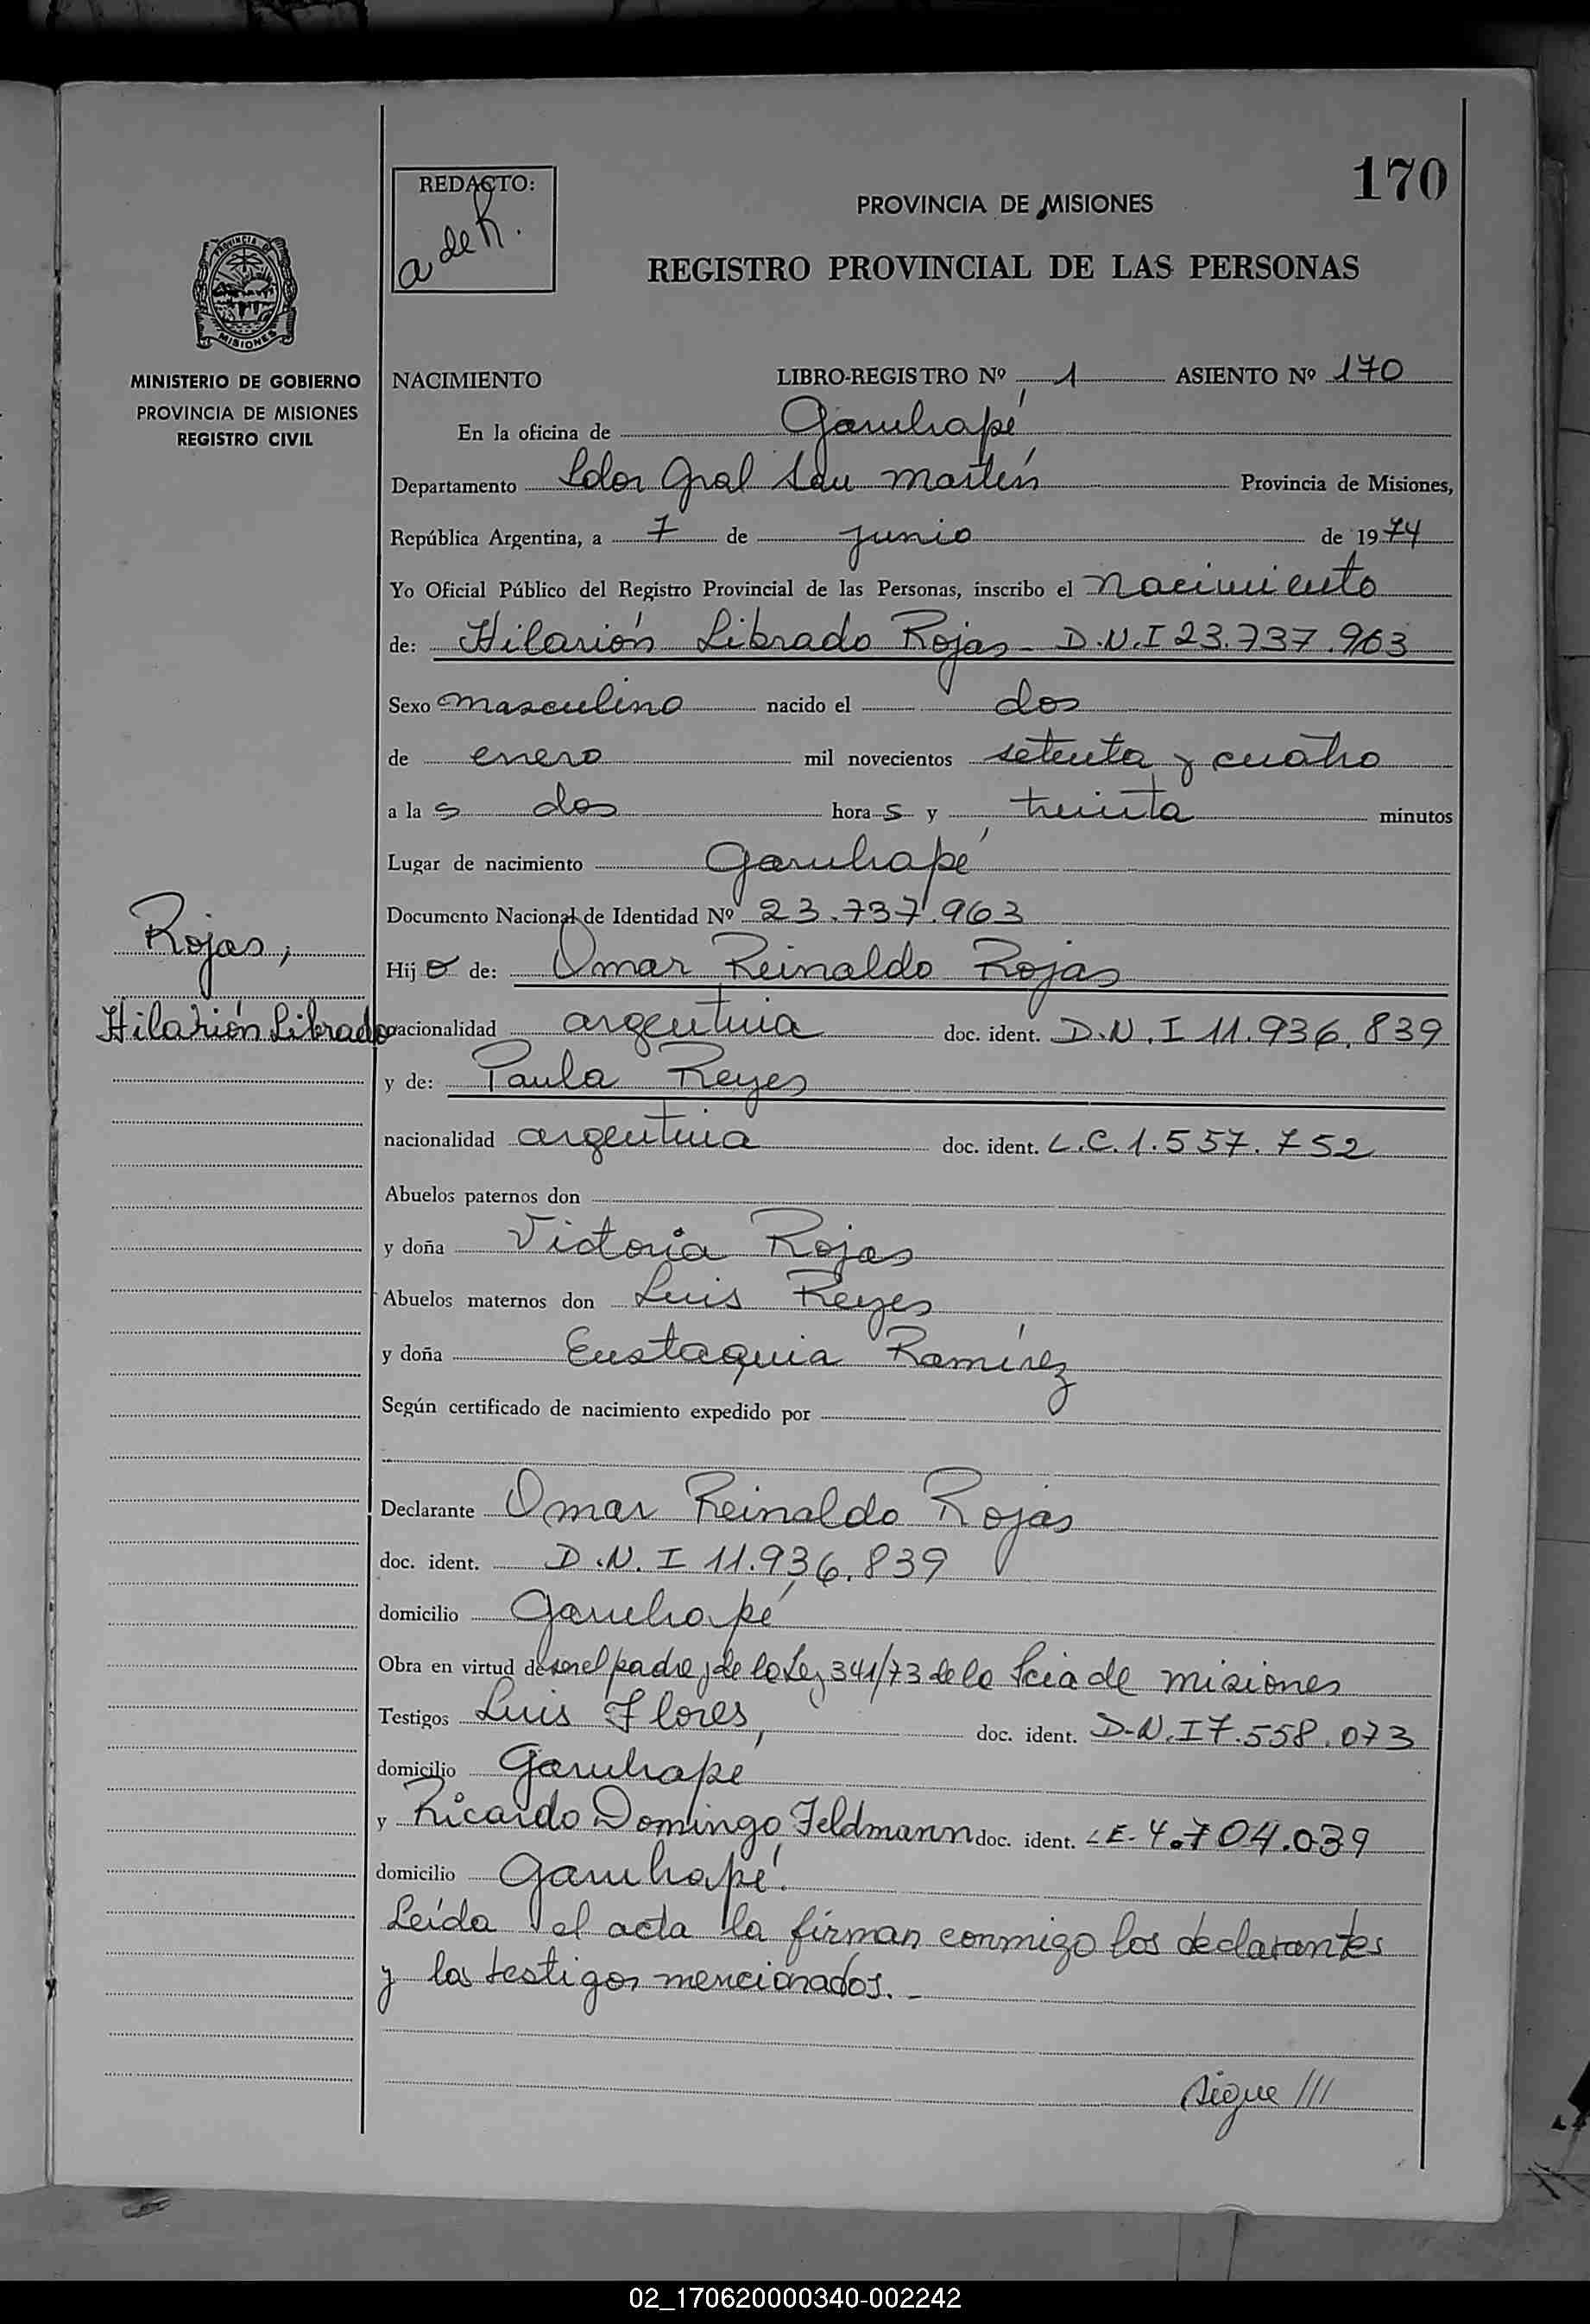 170
REDACTO:
a de R.
PROVINCIA DE MISIONES
REGISTRO PROVINCIAL DE LAS PERSONAS
PROVINCIA DE
MISIONES
MINISTERIO DE GOBIERNO
PROVINCIA DE MISIONES
REGISTRO CIVIL
NACIMIENTO LIBRO-REGISTRO Nº 1 ASIENTO Nº 170
En la oficina de Garuhapé
Departamento Ldor Gral San Martín Provincia de Misiones,
República Argentina, a 7 de junio de 1974
Yo Oficial Público del Registro Provincial de las Personas, inscribo el Nacimiento
de: Hilarión Librado Rojas - D.N.I 23.737.963
Sexo masculino nacido el dos
de enero mil novecientos setenta y cuatro
a la s dos hora s y treinta minutos
Lugar de nacimiento Garuhapé
Documento Nacional de Identidad Nº 23.737.963
Rojas,
Hilarión Librado
Hij o de: Omar Reinaldo Rojas
nacionalidad argentina doc. ident. D.N.I 11.936.839
y de: Paula Reyes
nacionalidad argentina doc. ident. L.C. 1.557.752
Abuelos paternos don
y doña Victoria Rojas
Abuelos maternos don Luis Reyes
y doña Eustaquia Ramírez
Según certificado de nacimiento expedido por
Declarante Omar Reinaldo Rojas
doc. ident. D.N.I 11.936.839
domicilio Garuhapé
Obra en virtud de ser el padre y de la Ley 341/73 de la Pcia de Misiones
Testigos Luis Flores, doc. ident. D.N.I 7.558.073
domicilio Garuhapé
y Ricardo Domingo Feldmann doc. ident. LE- 4.704.039
domicilio Garuhapé.
Leída el acta la firman conmigo los declarantes
y los testigos mencionados. -
Sigue ///
02_170620000340-002242